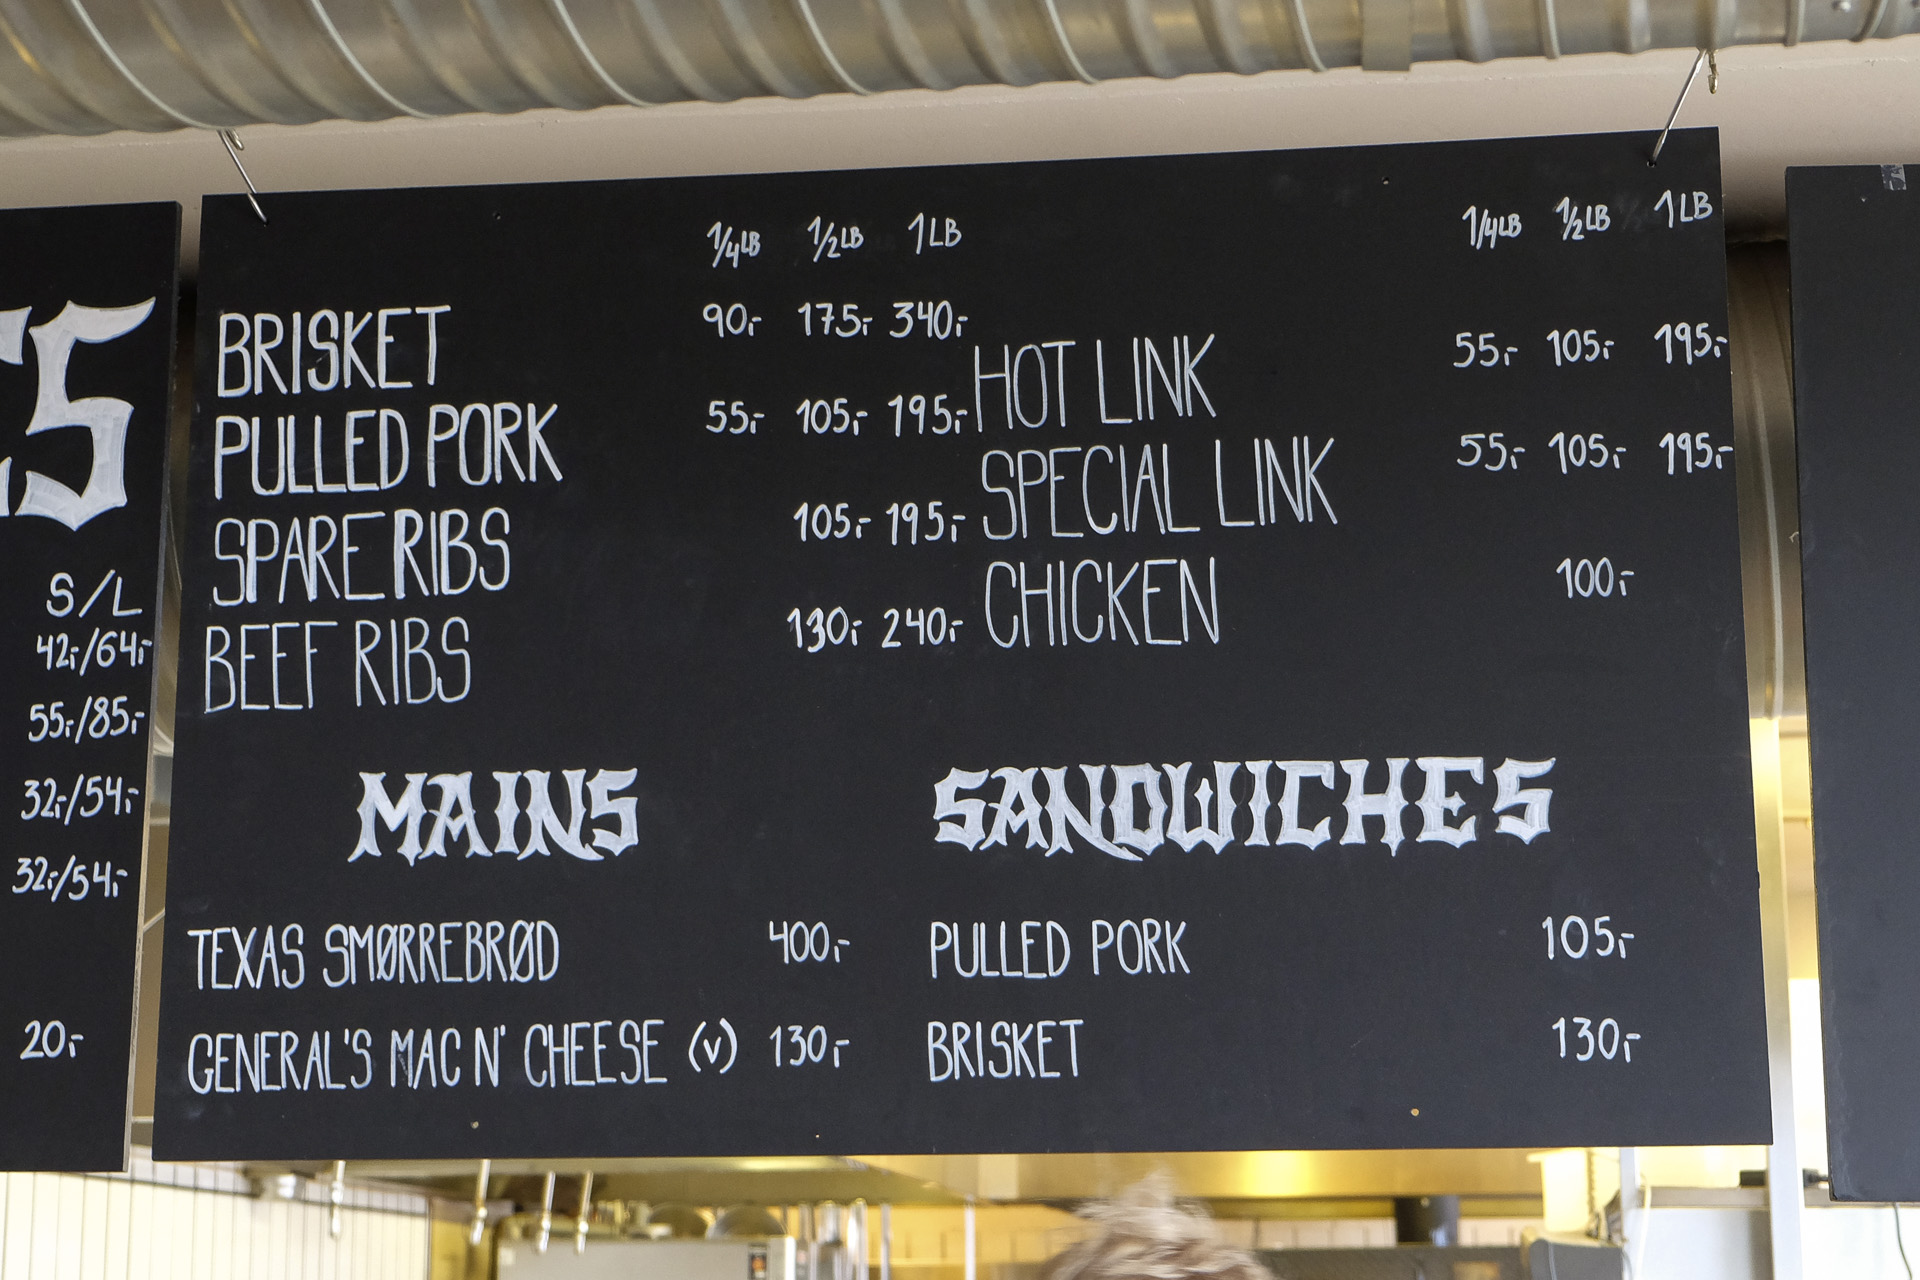 S/L
42,-/64,-
55,-/85,-
32,-/54,-
32,-/54,-
20,-
1/4LB 1/2LB 1LB
BRISKET 90,- 175,- 340,-
PULLED PORK 55,- 105,- 195,-
SPARE RIBS 105,- 195,-
BEEF RIBS 130,- 240,-
1/4LB 1/2LB 1LB
HOT LINK 55,- 105,- 195,-
SPECIAL LINK 55,- 105,- 195,-
CHICKEN 100,-
MAINS
TEXAS SMØRREBRØD 400,-
GENERAL'S MAC N' CHEESE (V) 130,-
SANDWICHES
PULLED PORK 105,-
BRISKET 130,-